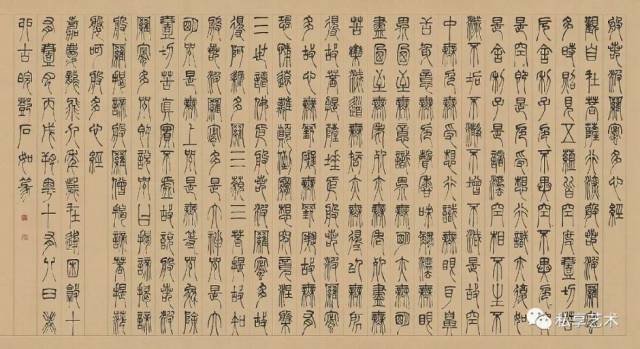 般若波羅蜜多心經
觀自在菩薩行深般若波羅蜜
多時照見五蘊皆空度一切苦
厄舍利子色不異空空不異色色即
是空空即是色受想行識亦復如
是舍利子是諸法空相不生不
滅不垢不淨不增不減是故空
中無色無受想行識無眼耳鼻
舌身意無色聲香味觸法無眼
界乃至無意識界無無明亦無無明
盡乃至無老死亦無老死盡無
苦集滅道無智亦無得以無所
得故菩提薩埵依般若波羅蜜
多故心無罣礙無罣礙故無有
恐怖遠離顛倒夢想究竟涅槃
三世諸佛依般若波羅蜜多故
得阿耨多羅三藐三菩提故知
般若波羅蜜多是大神咒是大
明咒是無上咒是無等等咒能除
一切苦真實不虛故說般若波
羅蜜多咒即說咒曰揭諦揭諦
般羅揭諦般羅僧揭諦菩提薩
嘉慶
古皖鄧石如篆
私享艺术